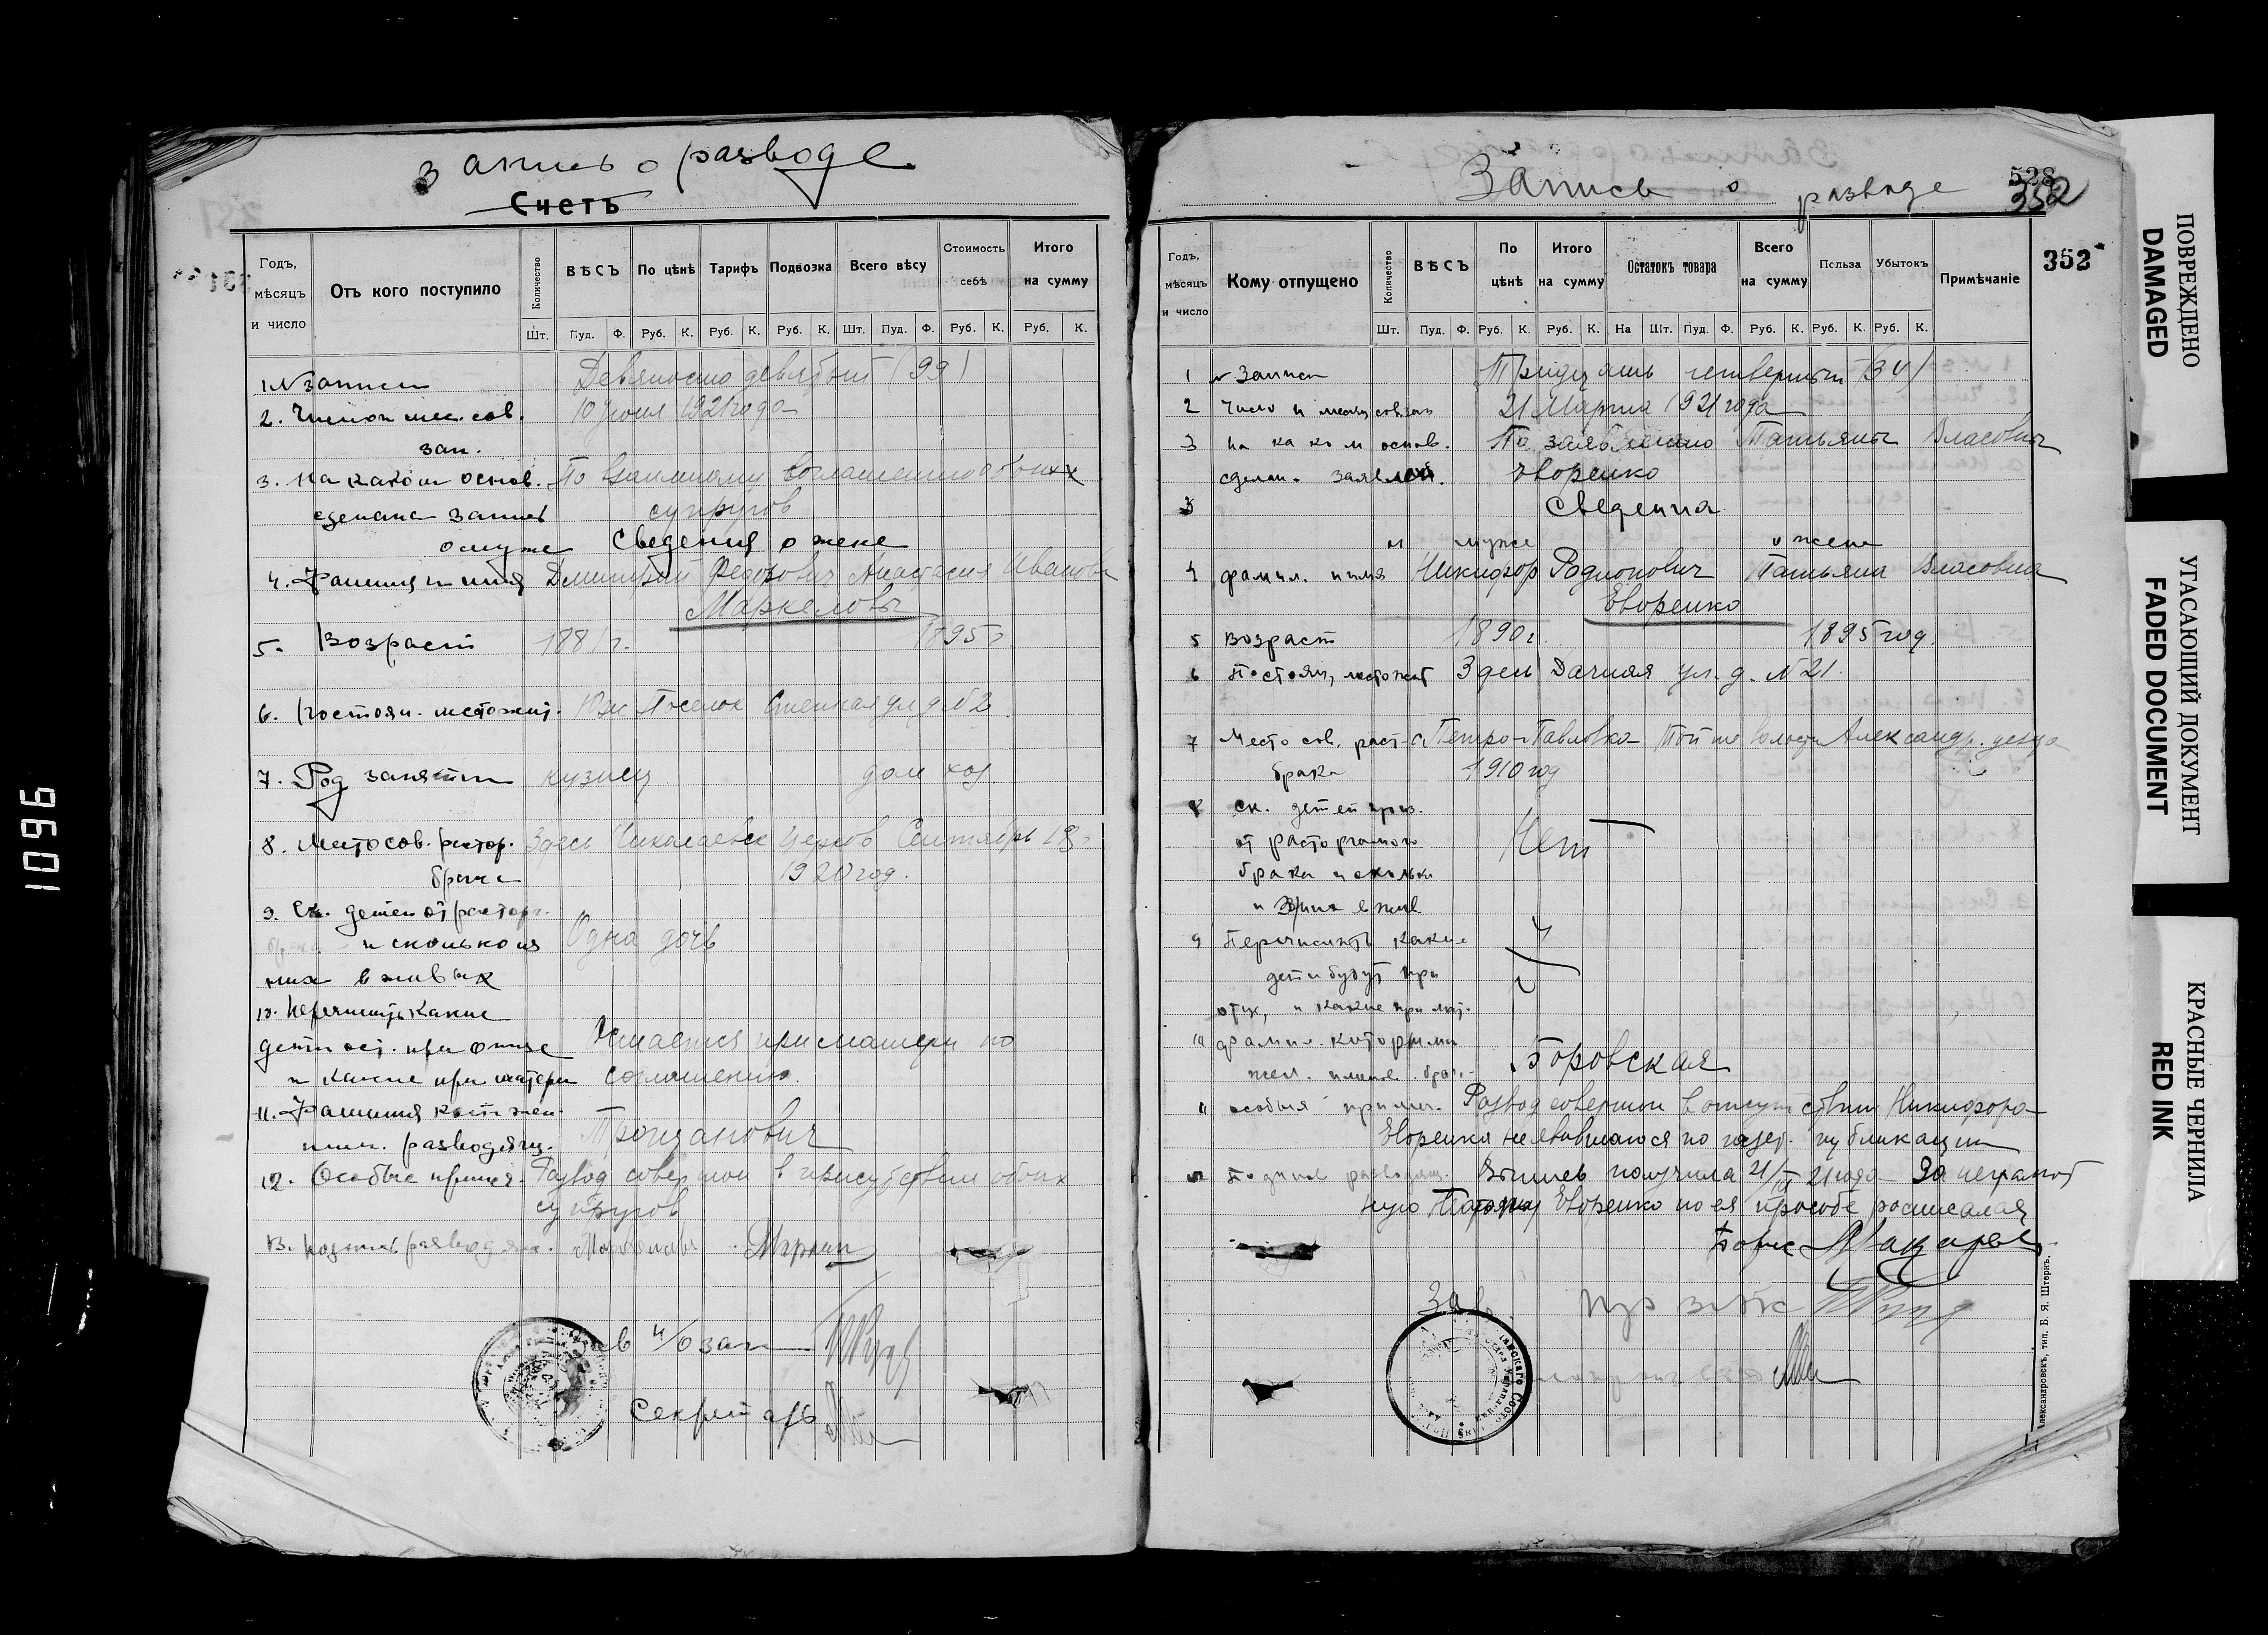 1096
Запись о разводе
Счетъ
Годъ, мѣсяцъ и число
Отъ кого поступило
Количество
ВѢСЪ
По цѣнѣ
Тарифъ
Подвозка
Всего вѣсу
Стоимость себѣ
Итого на сумму
Шт. Пуд. Ф. Руб. К. Руб. К. Руб. К. Шт. Пуд. Ф. Руб. К. Руб. К.
1 N записи Девяносто девятый (99)
2. Число и мес. сов. 10 июня 1921 года
зап.
3. На каком основ. По взаимному соглашению обоих
сделана запись супругов
о муже Сведения о жене
4. Фамилия и имя Дмитрий Федорович Анастасия Иванова
Маркеловы
5. Возраст 1881 г. 1895 г
6. Постоян. местожит. Юж Поселок Степная ул д N 2
7. Род занятии кузнец дом хоз
8. Место сов. растор. Здесь Николаевск церков Сентябрь
брака 1920 год.
9. Ск. детей от расторг.
брака и сколько из Одна дочь
них в живых
10. Перечислить какие
дети ост. при отце Остается при матери по
и какие при матери соглашению.
11. Фамилия кот. жел.
имен. разводящ.
12. Особые примеч. Развод совершон в присутствии обоих
супругов
13. Подпись разводящ.
Зав п/о зап
Секретарь
Запись о разводе
528
352
352
Годъ, мѣсяцъ и число
Кому отпущено
Количество
ВѢСЪ
По цѣнѣ
Итого на сумму
Остатокъ товара
Всего на сумму
Польза
Убытокъ
Примѣчаніе
Шт. Пуд. Ф. Руб. К. Руб. К. На Шт. Пуд. Ф. Руб. К. Руб. К. Руб. К.
1 N записи Тридцать четвертый (34)
2 Число и месяц сов. зап 21 Марта 1921 года
3 На каком основ. По заявлению Татьяны Власовны
сделан. заявлен. Еворенко
Сведения
о муже о жене
4 фамил. и имя Никифор Родионович Татьяна Власовна
Еворенко
5 Возраст 1890 г. 1895 год.
6 Постоян, местожит Здесь Дачная ул. д. N 21.
7 Место сов. раст. с. Петро-Павловка той же волости Александр. уезда
брака 1910 год
8 ск. детей
от расторгаемого Нет
брака и сколько
из них в жив.
9 Перечислить какие
дети будут при
отце, и какие при мат.
10 фамил. которыми
жел. именов. брач. Боровская
11 особыя примеч. Развод совершон в отсутствии Никифора
Еворенка не явившагося по газет. публикации
12 Подпись разводящ. Выпись получила 21/III 21 года За неграмот
ную Татьяну Еворенко по ея просьбе росписался
Зав.
Александровскъ, тип. Б. Я. Штернъ.
ПОВРЕЖДЕНО
DAMAGED
УГАСАЮЩИЙ ДОКУМЕНТ
FADED DOCUMENT
КРАСНЫЕ ЧЕРНИЛА
RED INK